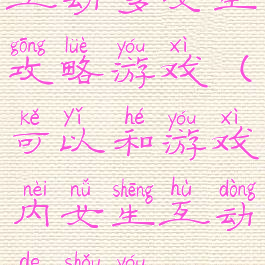 gōng lüè yóu xì
攻略游戏（
kě yǐ hé yóu xì
可以和游戏
nèi nǚ shēng hù dòng
内女生互动
de shǒu yóu